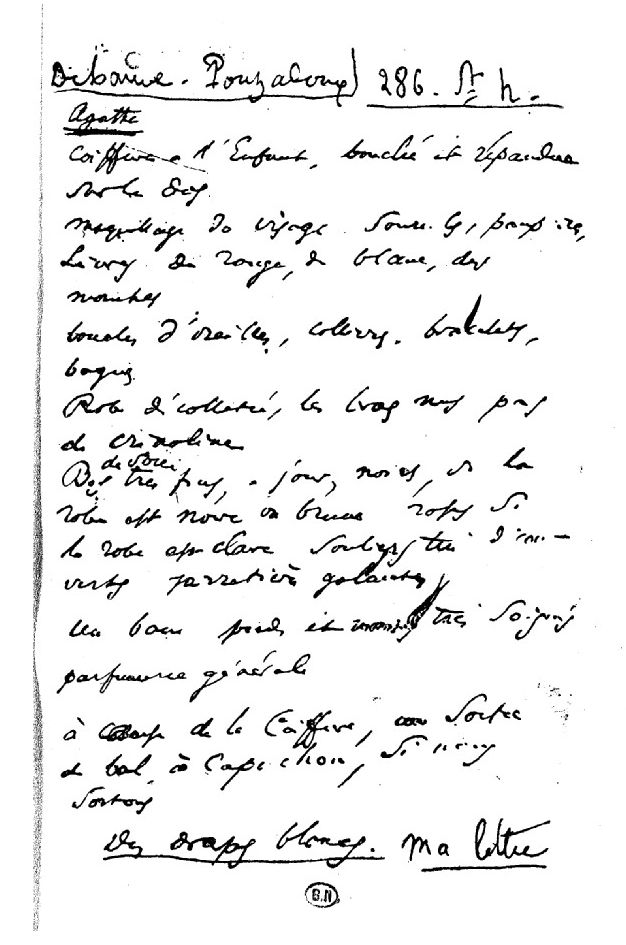 Debauve. Pouzadoux) 286. St h.
Agathe
Coiffure à l'Enfant, bouclée et répandue
sur le dos
maquillage du visage sourcils, paupières,
Lèvres du rouge, du blanc, des
mouches
boucles d'oreilles, colliers, bracelets,
bagues
Robe décolletée, les bras nus pas
de crinoline
de soie
Bas très fins, à jour, noirs, si la
robe est noire ou brune roses si
la robe est claire Souliers très
verts jarretières galantes
Un bain pieds et mains très soignés
parfumerie générale
à cause de la Coiffure, une Sortie
de bal à Capuchon, si nous
sortons
Des draps blancs. Ma lettre
B.N